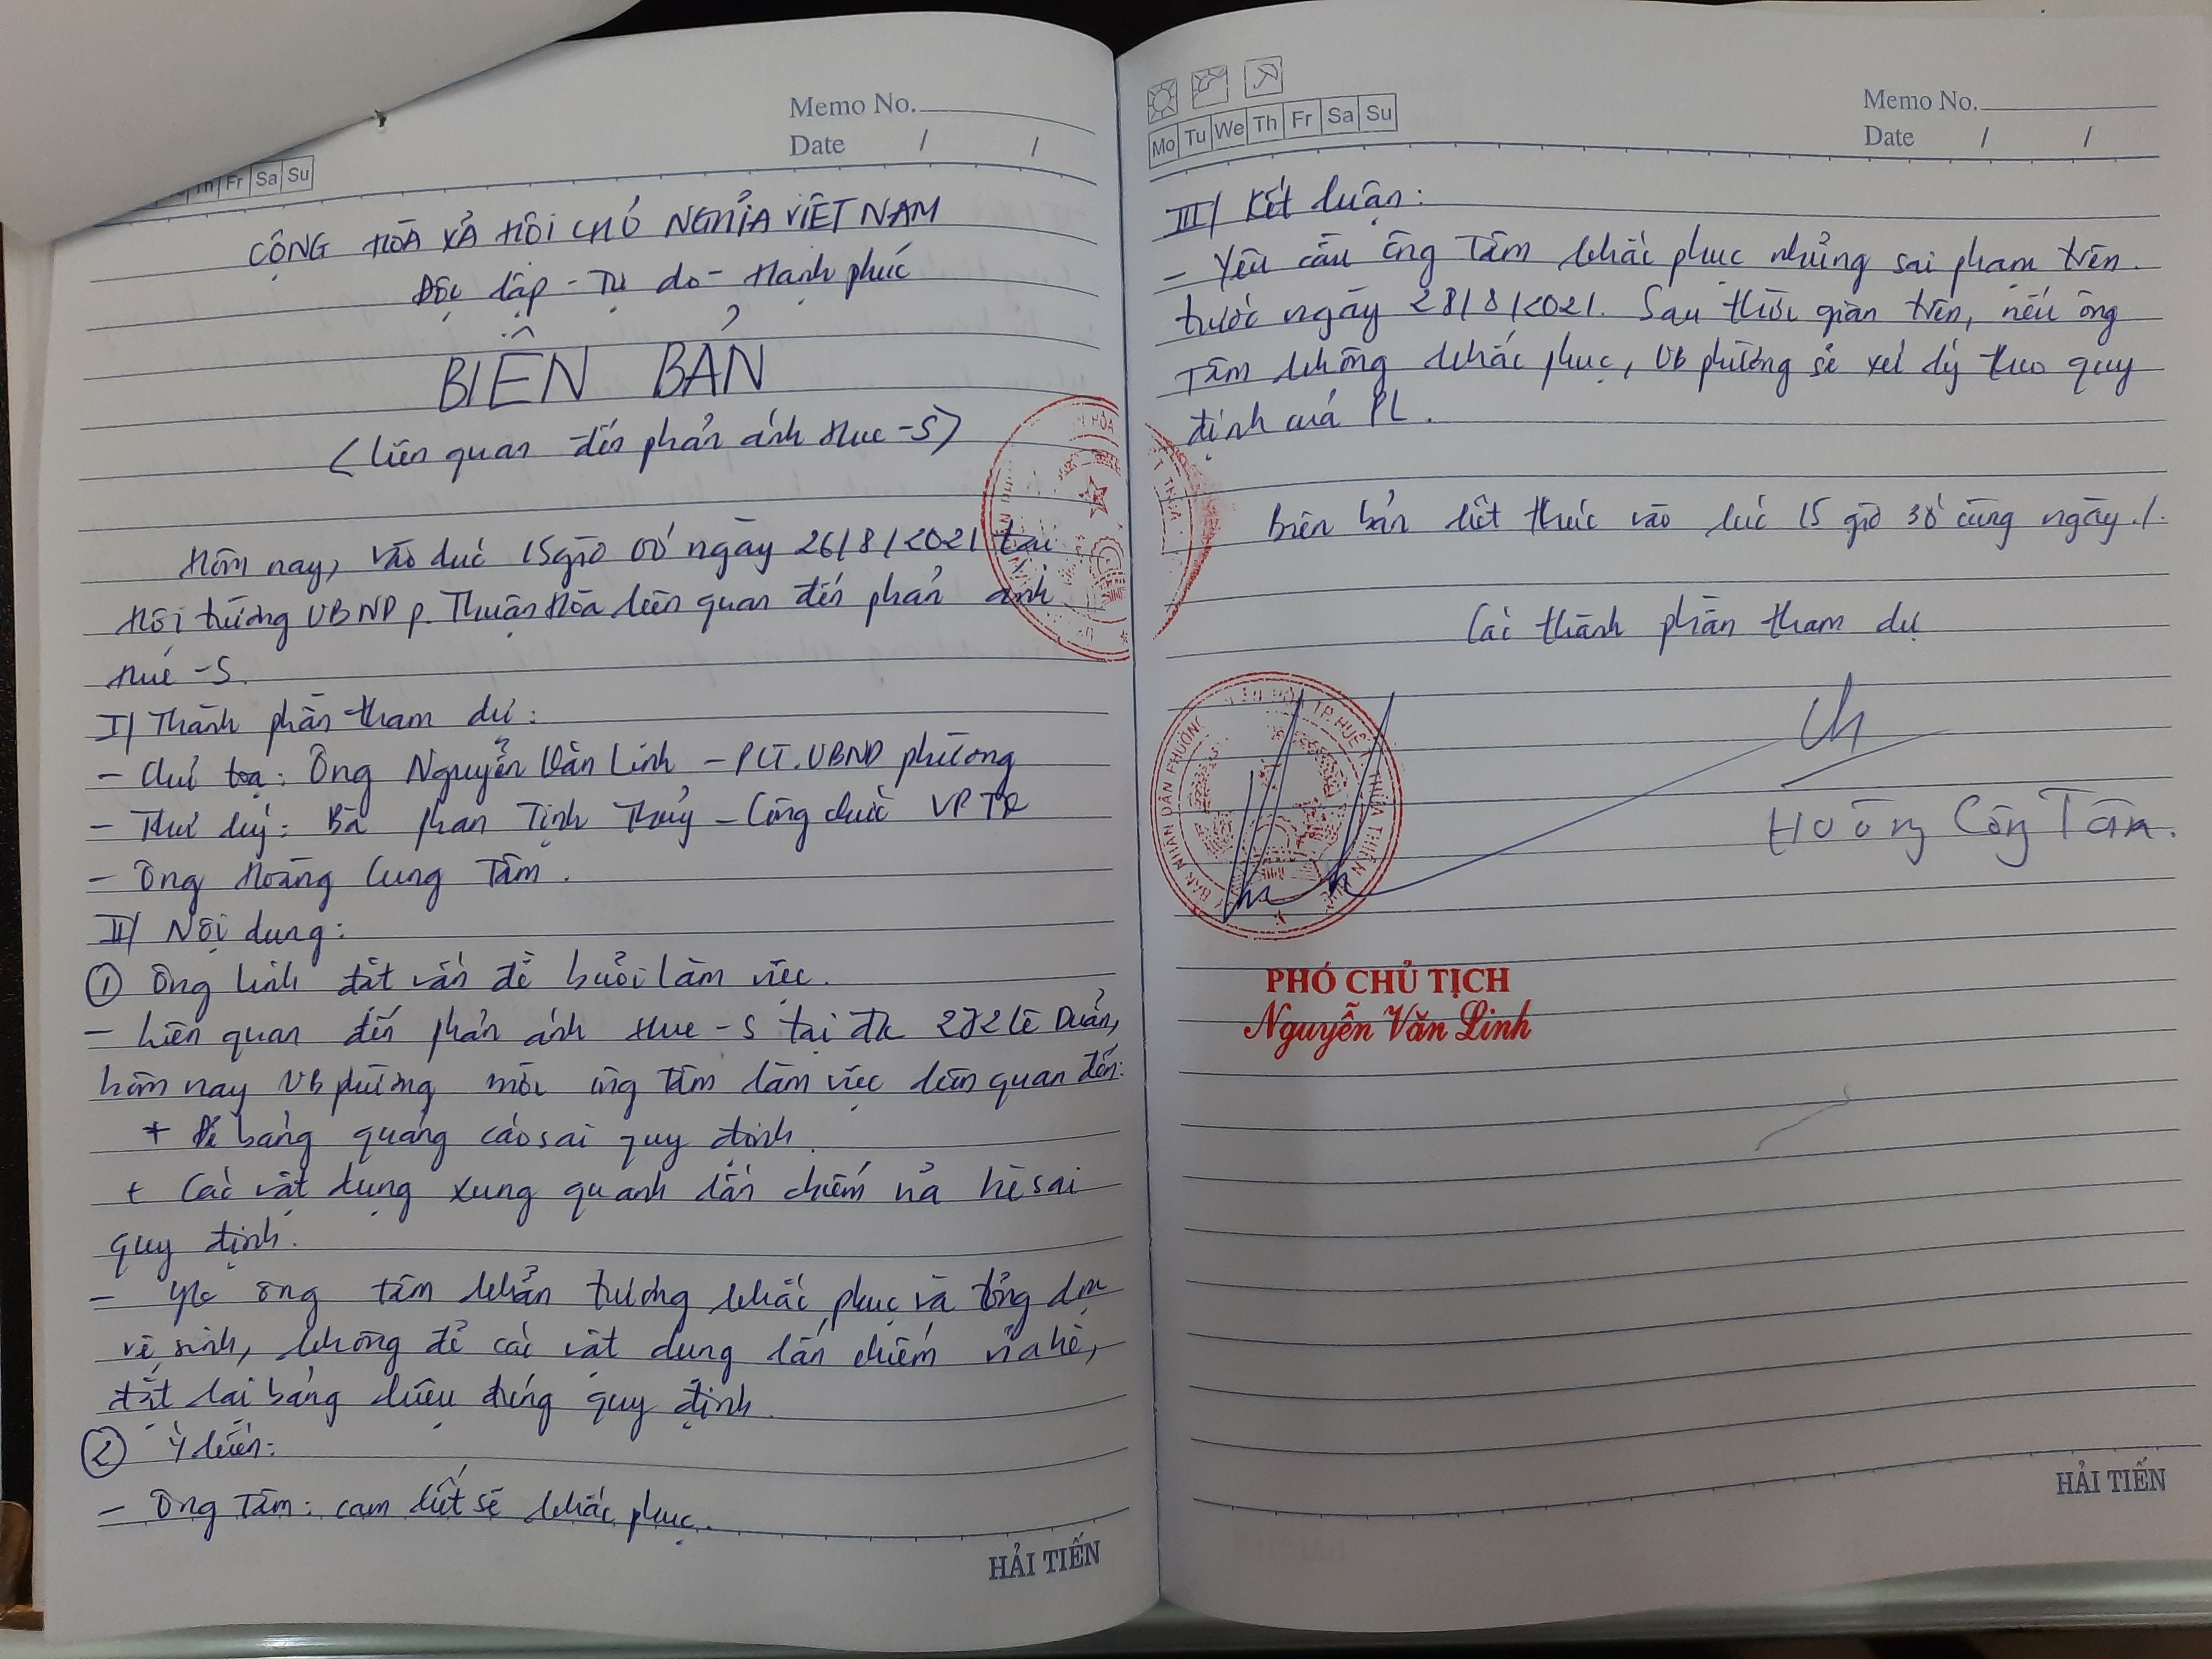 Memo No.
Date / /
Th Fr Sa Su
CỘNG HÒA XÃ HỘI CHỦ NGHĨA VIỆT NAM
Độc lập - Tự do - Hạnh phúc
BIÊN BẢN
(Liên quan đến phản ánh Hue-S)
Hôm nay, vào lúc 15 giờ 00' ngày 26/8/2021 tại
Hội trường UBND p. Thuận Hòa liên quan đến phản ánh
Hue-S.
I/ Thành phần tham dự:
- Chủ tọa: Ông Nguyễn Văn Linh - PCT.UBND phường
- Thư ký: Bà Phan Tịnh Thủy - Công chức VPTK
- Ông Hoàng Cung Tâm.
II/ Nội dung:
① Ông Linh đặt vấn đề buổi làm việc.
- Liên quan đến phản ánh Hue-S tại đc Lê Duẩn,
hôm nay UB phường mời ông Tâm làm việc liên quan đến:
+ Để bảng quảng cáo sai quy định.
+ Các vật dụng xung quanh lấn chiếm vỉa hè sai
quy định.
- Yc ông Tâm khẩn trương khắc phục và tổng dọn
vệ sinh, không để các vật dụng lấn chiếm vỉa hè,
đặt lại bảng hiệu đúng quy định.
② Ý kiến:
- Ông Tâm: cam kết sẽ khắc phục.
HẢI TIẾN
Memo No.
Date / /
Mo Tu We Th Fr Sa Su
III/ Kết luận:
- Yêu cầu ông Tâm khắc phục những sai phạm trên
trước ngày 28/8/2021. Sau thời gian trên, nếu ông
Tâm không khắc phục, UB phường sẽ xử lý theo quy
định của PL.
Biên bản kết thúc vào lúc 15 giờ 30' cùng ngày./.
Các thành phần tham dự
Hoàng Cung Tâm.
PHÓ CHỦ TỊCH
Nguyễn Văn Linh
HẢI TIẾN